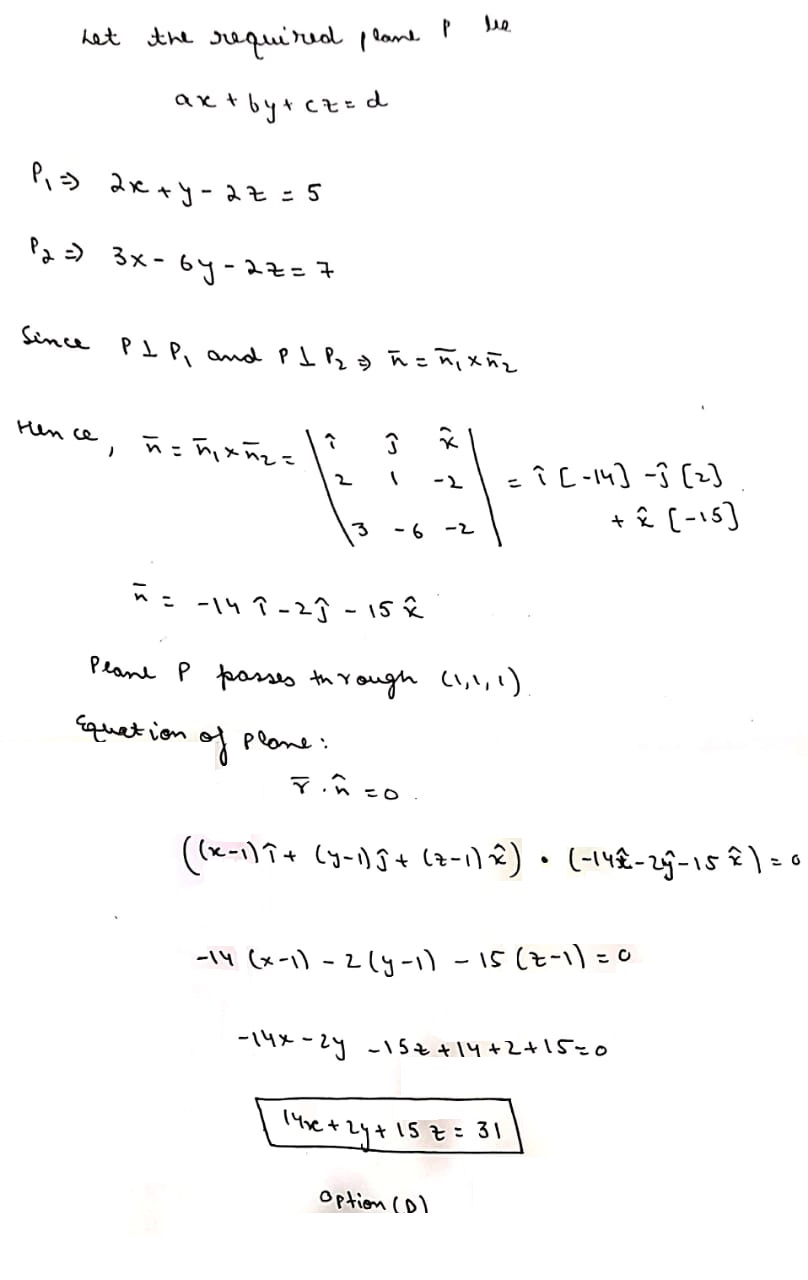 Let the required plane P be
ax + by + cz = d
P₁ ⇒ 2x + y - 2z = 5
P₂ ⇒ 3x - 6y - 2z = 7
Since P ⊥ P₁ and P ⊥ P₂ ⇒ n̄ = n̄₁ × n̄₂
Hence, n̄ = n̄₁ × n̄₂ = | î ĵ k̂ |
| 2 1 -2 | = î [-14] - ĵ [2]
| 3 -6 -2 | + k̂ [-15]
n̄ = -14 î - 2ĵ - 15 k̂
Plane P passes through (1,1,1)
Equation of plane:
r̄ . n̂ = 0 .
((x-1)î + (y-1)ĵ + (z-1)k̂) • (-14î - 2ĵ - 15 k̂) = 0
-14 (x-1) - 2 (y-1) - 15 (z-1) = 0
-14x - 2y - 15z + 14 + 2 + 15 = 0
14x + 2y + 15 z = 31
Option (D)